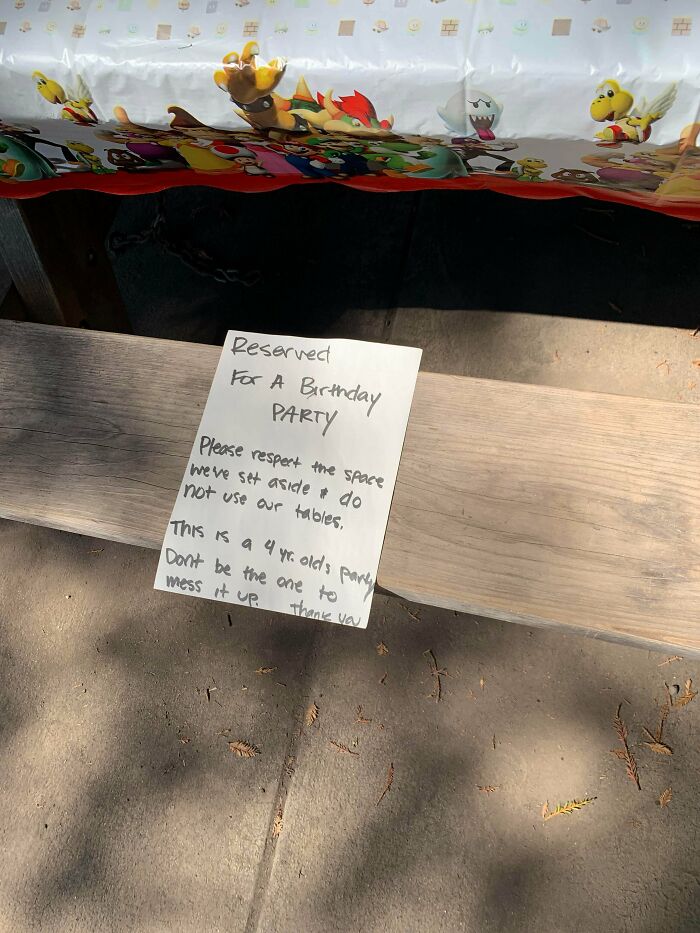 Reserved
For A Birthday
PARTY
Please respect the space
we've set aside & do
not use our tables.
This is a 4 yr. olds party
Dont be the one to
mess it up. Thank you